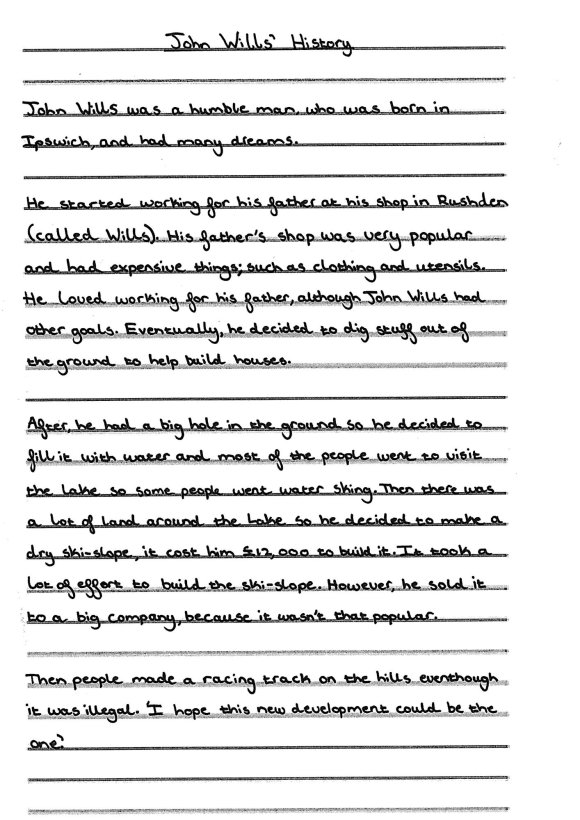 John Wills' History
John Wills was a humble man, who was born in
Ipswich, and had many dreams.
He started working for his father at his shop in Rushden
(called Wills). His father's shop was very popular
and had expensive things; such as clothing and utensils.
He loved working for his father, although John Wills had
other goals. Eventually, he decided to dig stuff out of
the ground to help build houses.
After, he had a big hole in the ground so he decided to
fill it with water and most of the people went to visit
the lake so some people went water sking. Then there was
a lot of land around the lake so he decided to make a
dry ski-slope, it cost him £12,000 to build it. It took a
lot of effort to build the ski-slope. However, he sold it
to a big company, because it wasn't that popular.
Then people made a racing track on the hills eventhough
it was illegal. 'I hope this new development could be the
one.'